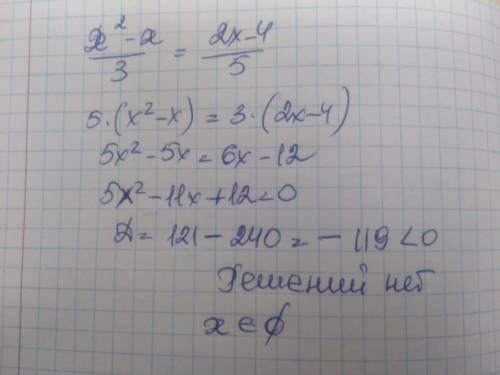 x² - x / 3 = 2x - 4 / 5
5·(x² - x) = 3·(2x - 4)
5x² - 5x = 6x - 12
5x² - 11x + 12 = 0
D = 121 - 240 = - 119 < 0
Решений нет
x ∈ ∅